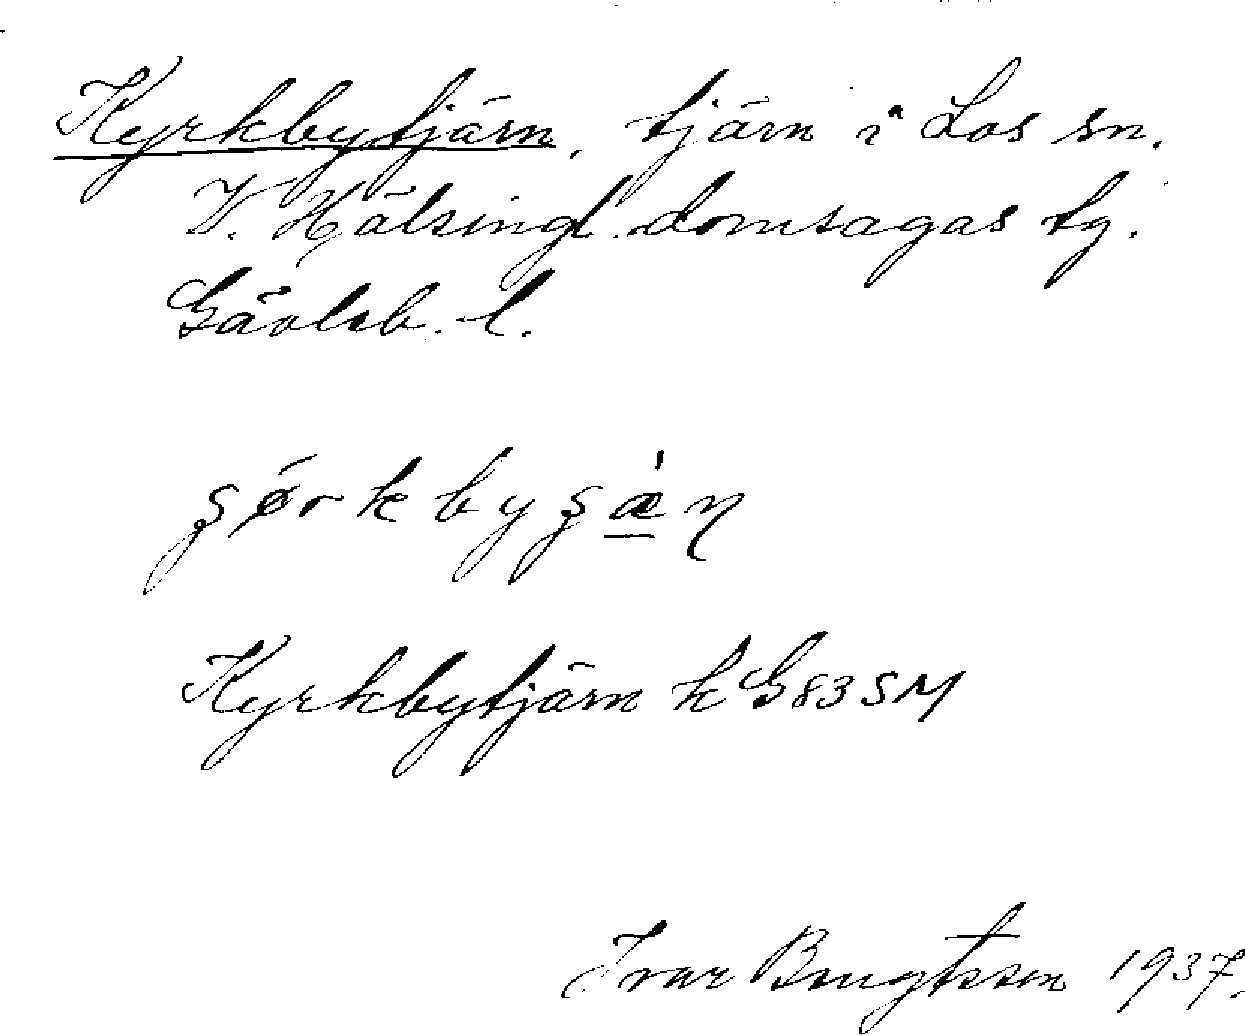 Kyrkbytjärn, tjärn i Los sn.
V. Hälsingl. domsagas tg.
Gävleb. l.
Kyrkbytjärn k G 83 SM
Ivar Bengtsson 1937.